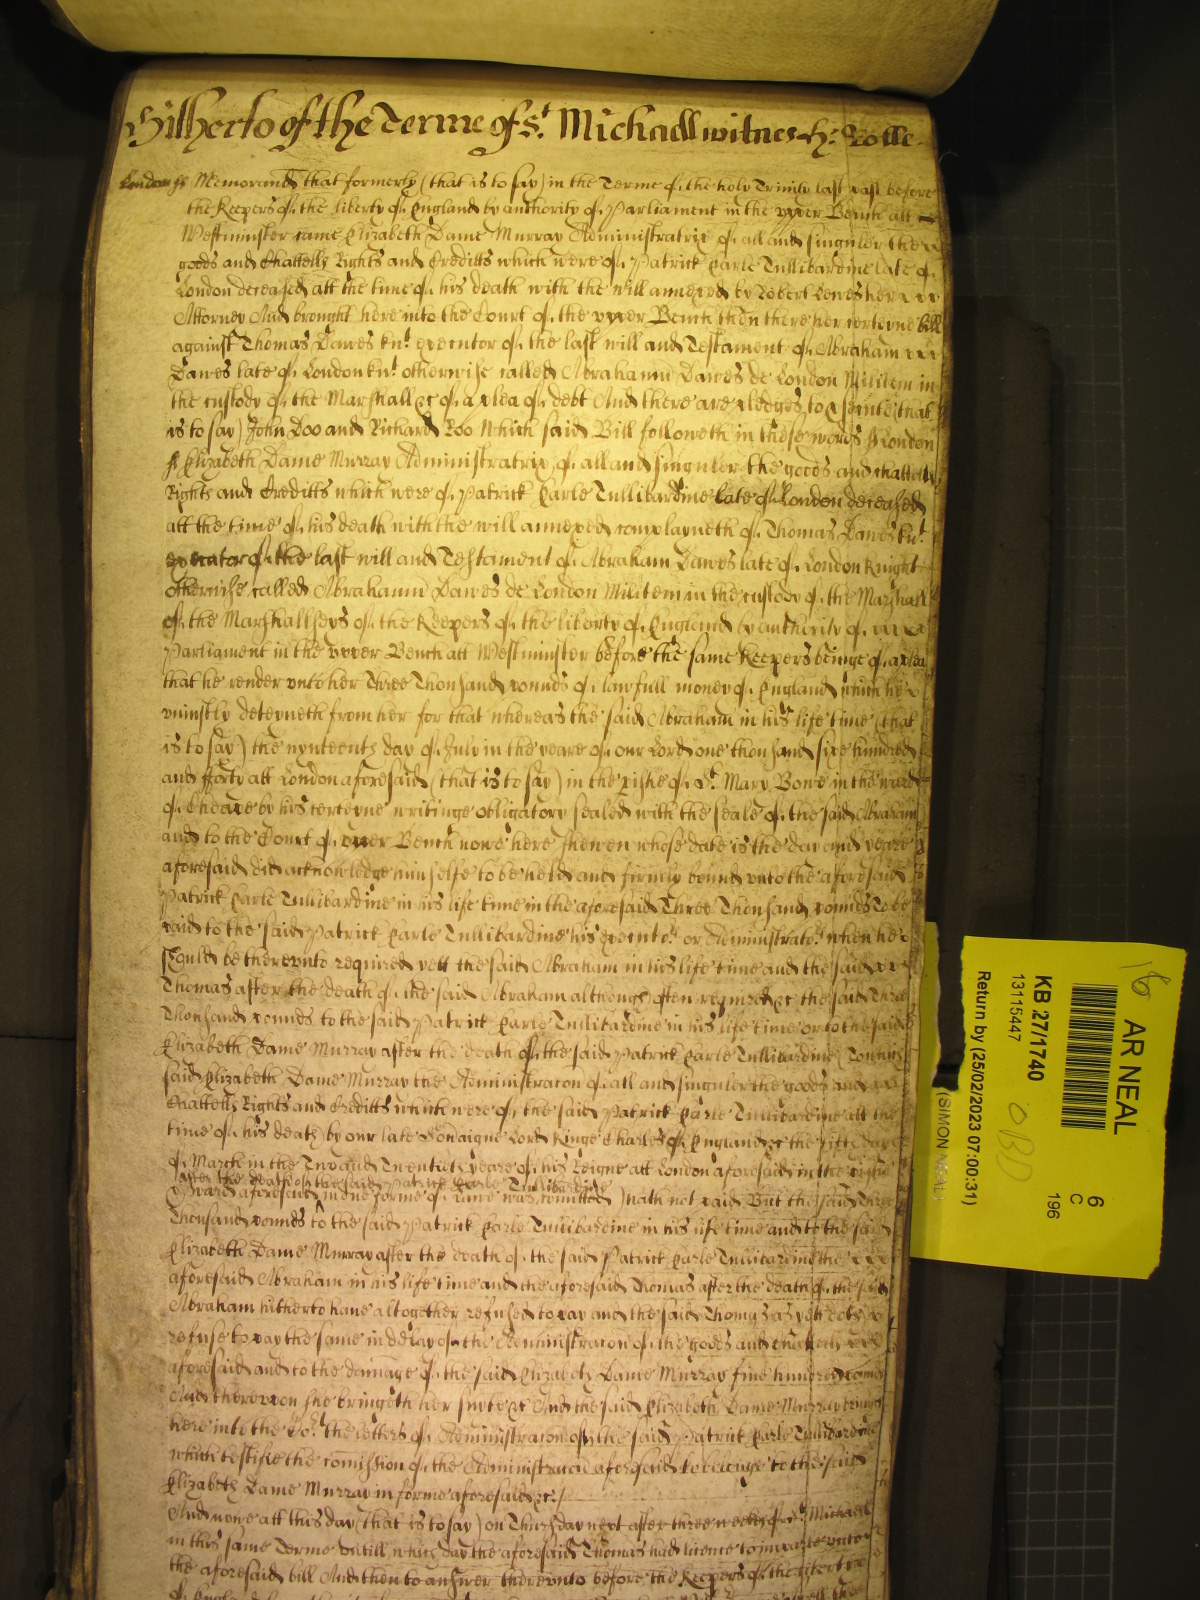 Hitherto of the Terme of St. Michaell witnes H: Rolle
London ss Memorand that formerly (that is to say) in the Terme of the holy Trinity last past before
the Keepers of the liberty of England by authority of Parliament in the upper Bench att
Westminster came Elizabeth Dame Murray Administratrix of all and singuler the
goods and Chattells Rights and Creditts which were of Patrick Earle Tullibardine late of
London deceased att the time of his death with the will annexed by Robert Lewes her
Attorney And brought here into the Court of the upper Bench then there her certeyne bill
against Thomas Dawes knt. executor of the last will and Testament of Abraham
Dawes late of London knt. otherwise called Abrahamu Dawes de London Militem in
the custody of the Marshall &c of a plea of debt And there are pledges to p'secute (that
is to say) John Doo and Richard Roo Which said Bill followeth in these words ss London
ss Elizabeth Dame Murray Administratrix of all and singuler the goods and chattells
Rights and Creditts which were of Patrick Earle Tullibardine late of London deceased
att the time of his death with the will annexed complayneth of Thomas Dawes knt.
executor of the last will and Testament of Abraham Dawes late of London Knight
otherwise called Abrahamu Dawes de London Militem in the custody of the Marshall
of the Marshallseys of the Keepers of the liberty of England by authority of
Parliament in the upper Bench att Westminster before the same Keepers beinge of a plea
that he render unto her Three Thousand pounds of lawfull money of England which he
uniustly deteyneth from her for that whereas the said Abraham in his life time (that
is to say) the nynteenth day of July in the yeare of our Lord one thousand sixe hundred
and forty att London aforesaid (that is to say) in the p'ishe of St. Mary Bowe in the ward
of Cheape by his certeyne writinge obligatory sealed with the seale of the said Abraham
and to the Court of upper Bench nowe here shewen whose date is the day and yeare
aforesaid did acknowledge himselfe to be held and firmly bound unto the aforesaid
Patrick Earle Tullibardine in his life time in the aforesaid Three Thousand pounds To be
paid to the said Patrick Earle Tullibardine his executors or Administrators when he
should be thereunto required yett the said Abraham in his life time and the said
Thomas after the death of the said Abraham although often required &c the said Three
Thousand pounds to the said Patrick Earle Tullibardine in his life time or to the said
Elizabeth Dame Murray after the death of the said Patrick Earle Tullibardine (To which
said Elizabeth Dame Murray the Administracon of all and singuler the goods and
Chattells Rights and Creditts which were of the said Patrick Earle Tullibardine att the
time of his death by our late Sovaigne Lord Kinge Charles of England &c the fifth day
of March in the Two and Twentieth yeare of his Reigne att London aforesaid in the p'ishe
after the death of the said Patrick Earle Tullibardine
& ward aforesaid in due forme of Lawe was comitted) hath not paid But the said Three
Thousand pounds ^ to the said Patrick Earle Tullibardine in his life time and to the said
Elizabeth Dame Murray after the death of the said Patrick Earle Tullibardine the
aforesaid Abraham in his life time and the aforesaid Thomas after the death of the said
Abraham hitherto have altogether refused to pay and the said Thomas as yett doth
refuse to pay the same in delay of the Administracon of the goods and chattells
aforesaid and to the damage of the said Elizabeth Dame Murray five hundred pounds
And thereupon she bringeth her suyte &c And the said Elizabeth Dame Murray brings
here into the Co'rt the letters of Administracon of the said Patrick Earle Tullibardine
which testifie the comission of the Administracon aforesaid to belonge to the said
Elizabeth Dame Murray in forme aforesaid &c
And nowe att this day (that is to say) on Thursday next after three weekes of St. Michael
in this same Terme untill which day the aforesaid Thomas had licence to imparle unto
the aforesaid bill And then to answer thereunto before the Keepers of the liberty
of England
16
AR NEAL
6
C
196
KB 27/1740
13115447
Return by (25/02/2023 07:00:31)
(SIMON NEAL)
OBD